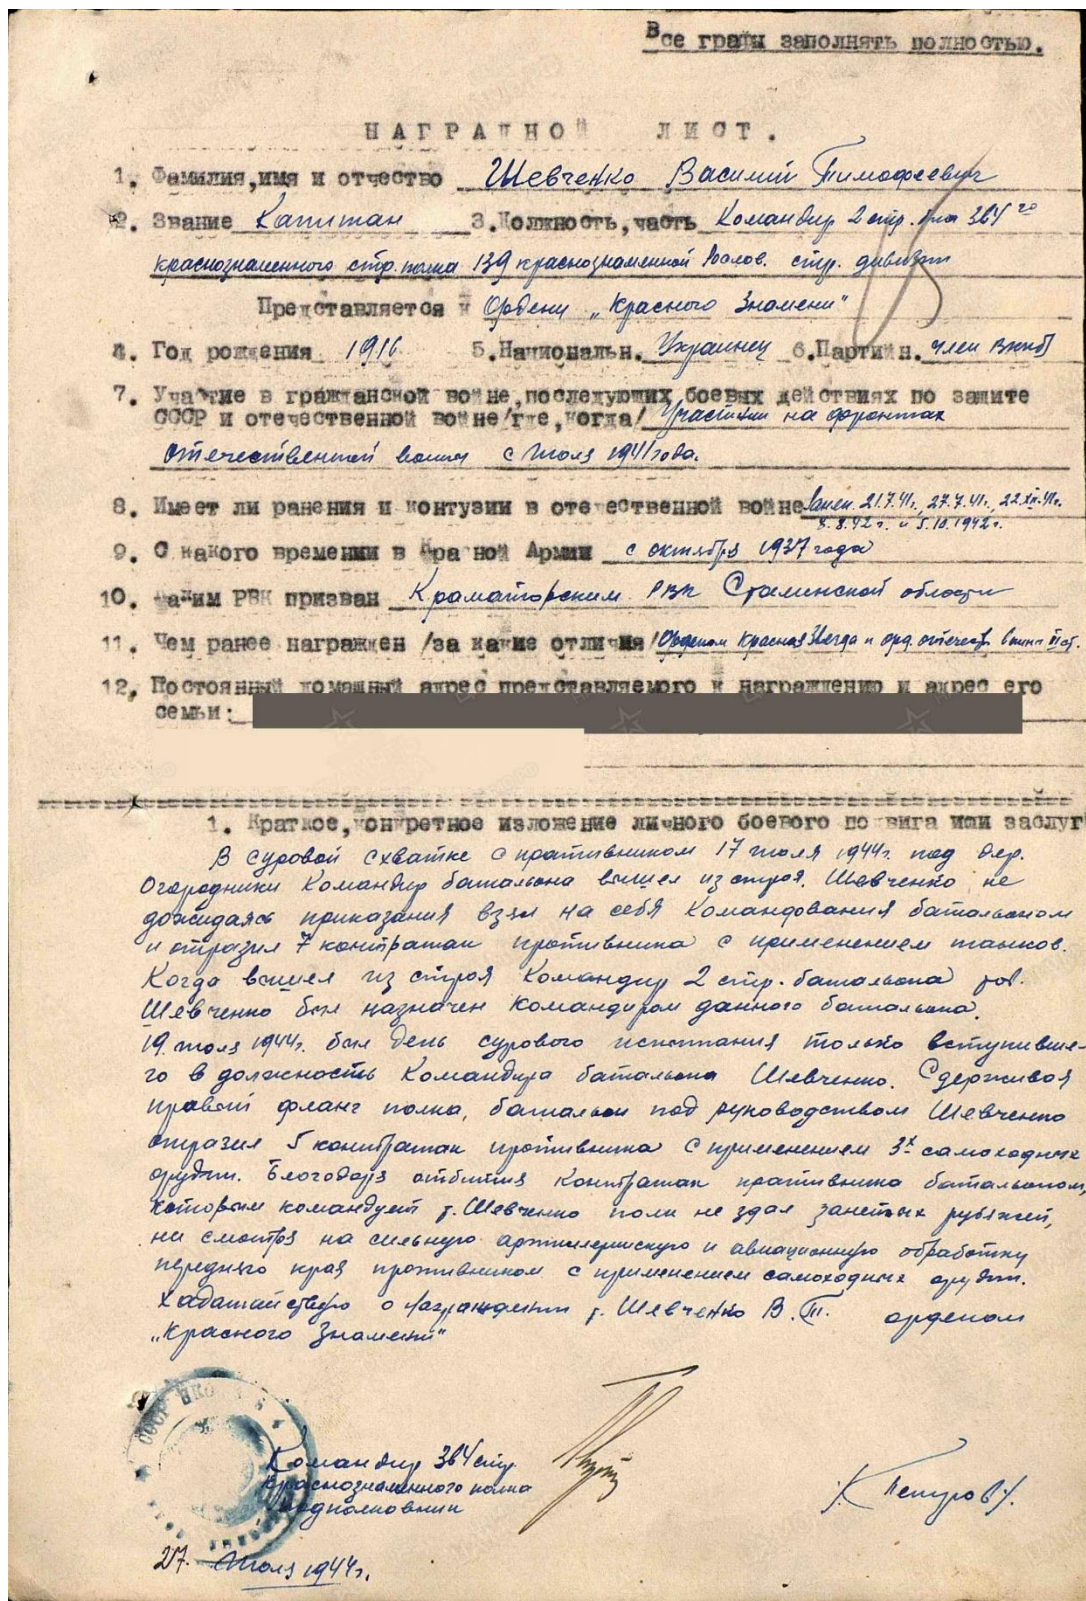 Все графы заполнять полностью.
НАГРАДНОЙ ЛИСТ.
1. Фамилия, имя и отчество Шевченко Василий Тимофеевич
2. Звание Капитан 3. Должность, часть Командир 2 стр. б-на 364го
краснознаменного стр. полка 139 краснознаменной Рослов. стр. дивизии
Представляется к Ордену „Красного Знамени"
4. Год рождения 1916 5. Национальн. Украинец 6. Партийн. член ВКПб
7. Участие в гражданской войне, последующих боевых действиях по защите
СССР и отечественной войне /где, когда/ Участник на фронтах
отечественной войны с июля 1941 года.
8. Имеет ли ранения и контузии в отечественной войне Ранен 21.7.41г., 27.7.41г., 22.XII.41г.
8.8.42г. и 5.10.1942г.
9. С какого времени в Красной Армии с октября 1937 года
10. Каким РВК призван Краматорским РВК Сталинской области
11. Чем ранее награжден /за какие отличия/ Орденом Красная Звезда и орд. отечеств война II ст.
12. Постоянный домашний адрес представляемого к награждению и адрес его
семьи:
1. Краткое, конкретное изложение личного боевого подвига или заслуг
В суровой схватке с противником 17 июля 1944г. под дер.
Огородники Командир батальона вышел из строя. Шевченко не
дожидаясь приказания взял на себя командования батальоном
и отразил 7 контратак противника с применением танков.
Когда вышел из строя Командир 2 стр. батальона тов.
Шевченко был назначен командиром данного батальона.
19 июля 1944г. был день сурового испытания только вступивше-
го в должность Командира батальона Шевченко. Сдерживая
правый фланг полка, батальон под руководством Шевченко
отразил 5 контратак противника с применением 3х самоходных
орудий. Благодаря отбития контратак противника батальоном,
которым командует т. Шевченко полк не здал занятых рубежей,
не смотря на сильную артиллерийскую и авиационную обработку
переднего края противником с применением самоходных орудий.
Ходатайствую о награждении т. Шевченко В.Т. орденом
„Красного Знамени"
СССР НКО
Командир 364 стр.
краснознаменного полка
подполковник
/К Петуров/.
27. Июля 1944г.